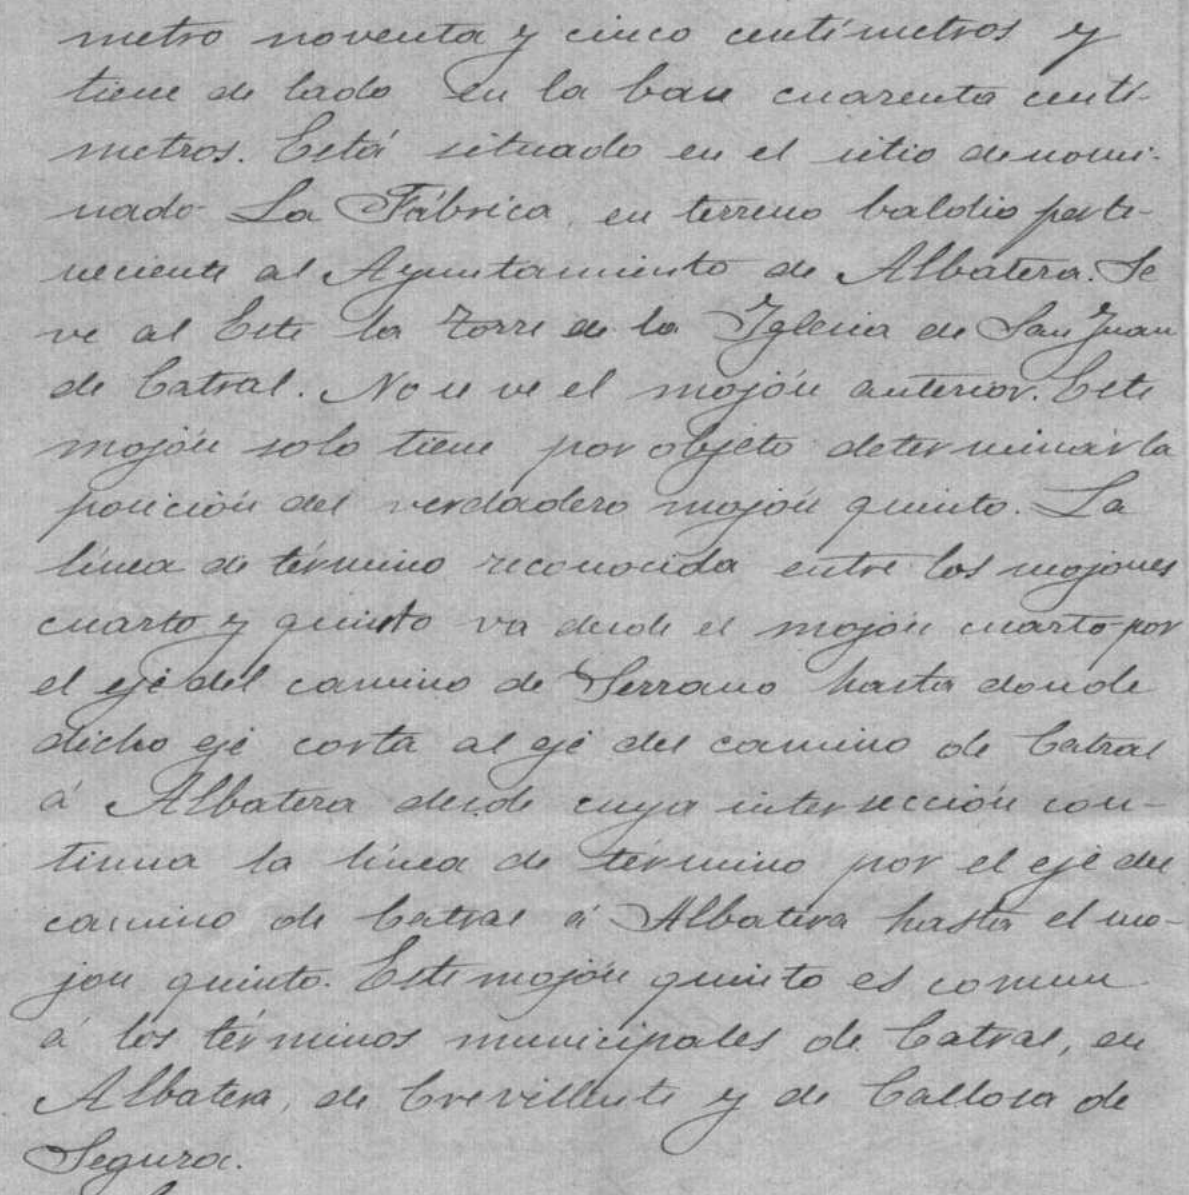 metro noventa y cinco centímetros y
tiene de lado en la base cuarenta centí-
metros. Está situado en el sitio denomi-
nado La Fábrica, en terreno baldio perte-
neciente al Ayuntamiento de Albatera. Se
ve al Este la torre de la Iglesia de San Juan
de Catral. No se ve el mojón anterior. Este
mojón solo tiene por objeto determinar la
posición del verdadero mojón quinto. La
línea de término reconocida entre los mojones
cuarto y quinto va desde el mojón cuarto por
el eje del camino de Serrano hasta donde
dicho eje corta al eje del camino de Catral
á Albatera desde cuya intersección con-
tinua la línea de término por el eje del
camino de Catral á Albatera hasta el mo-
jon quinto. Este mojón quinto es comun
á los términos municipales de Catral, de
Albatera, de Crevillente y de Callosa de
Segura.